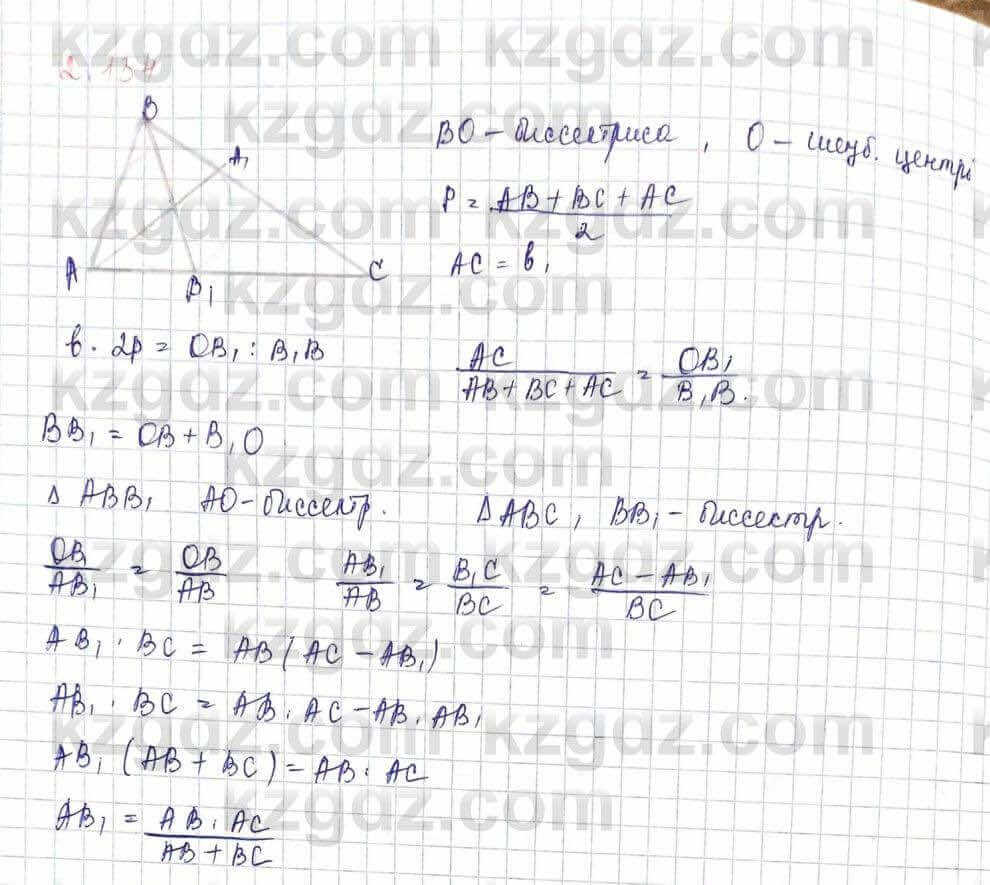 2.134
B
A₁
A
B₁
C
BO – биссектриса , O – шеңб. центрі
P = (AB + BC + AC)/2
AC = b,
b · 2p = OB₁ : B₁B
AC/(AB + BC + AC) = OB₁/B₁B.
BB₁ = OB + B₁O
Δ ABB₁ AO – биссектр.
Δ ABC , BB₁ – биссектр.
OB/AB₁ = OB/AB
AB₁/AB = B₁C/BC = (AC – AB₁)/BC
AB₁ · BC = AB (AC – AB₁)
AB₁ · BC = AB · AC – AB · AB₁
AB₁ (AB + BC) = AB · AC
AB₁ = (AB · AC)/(AB + BC)
kzgdz.com